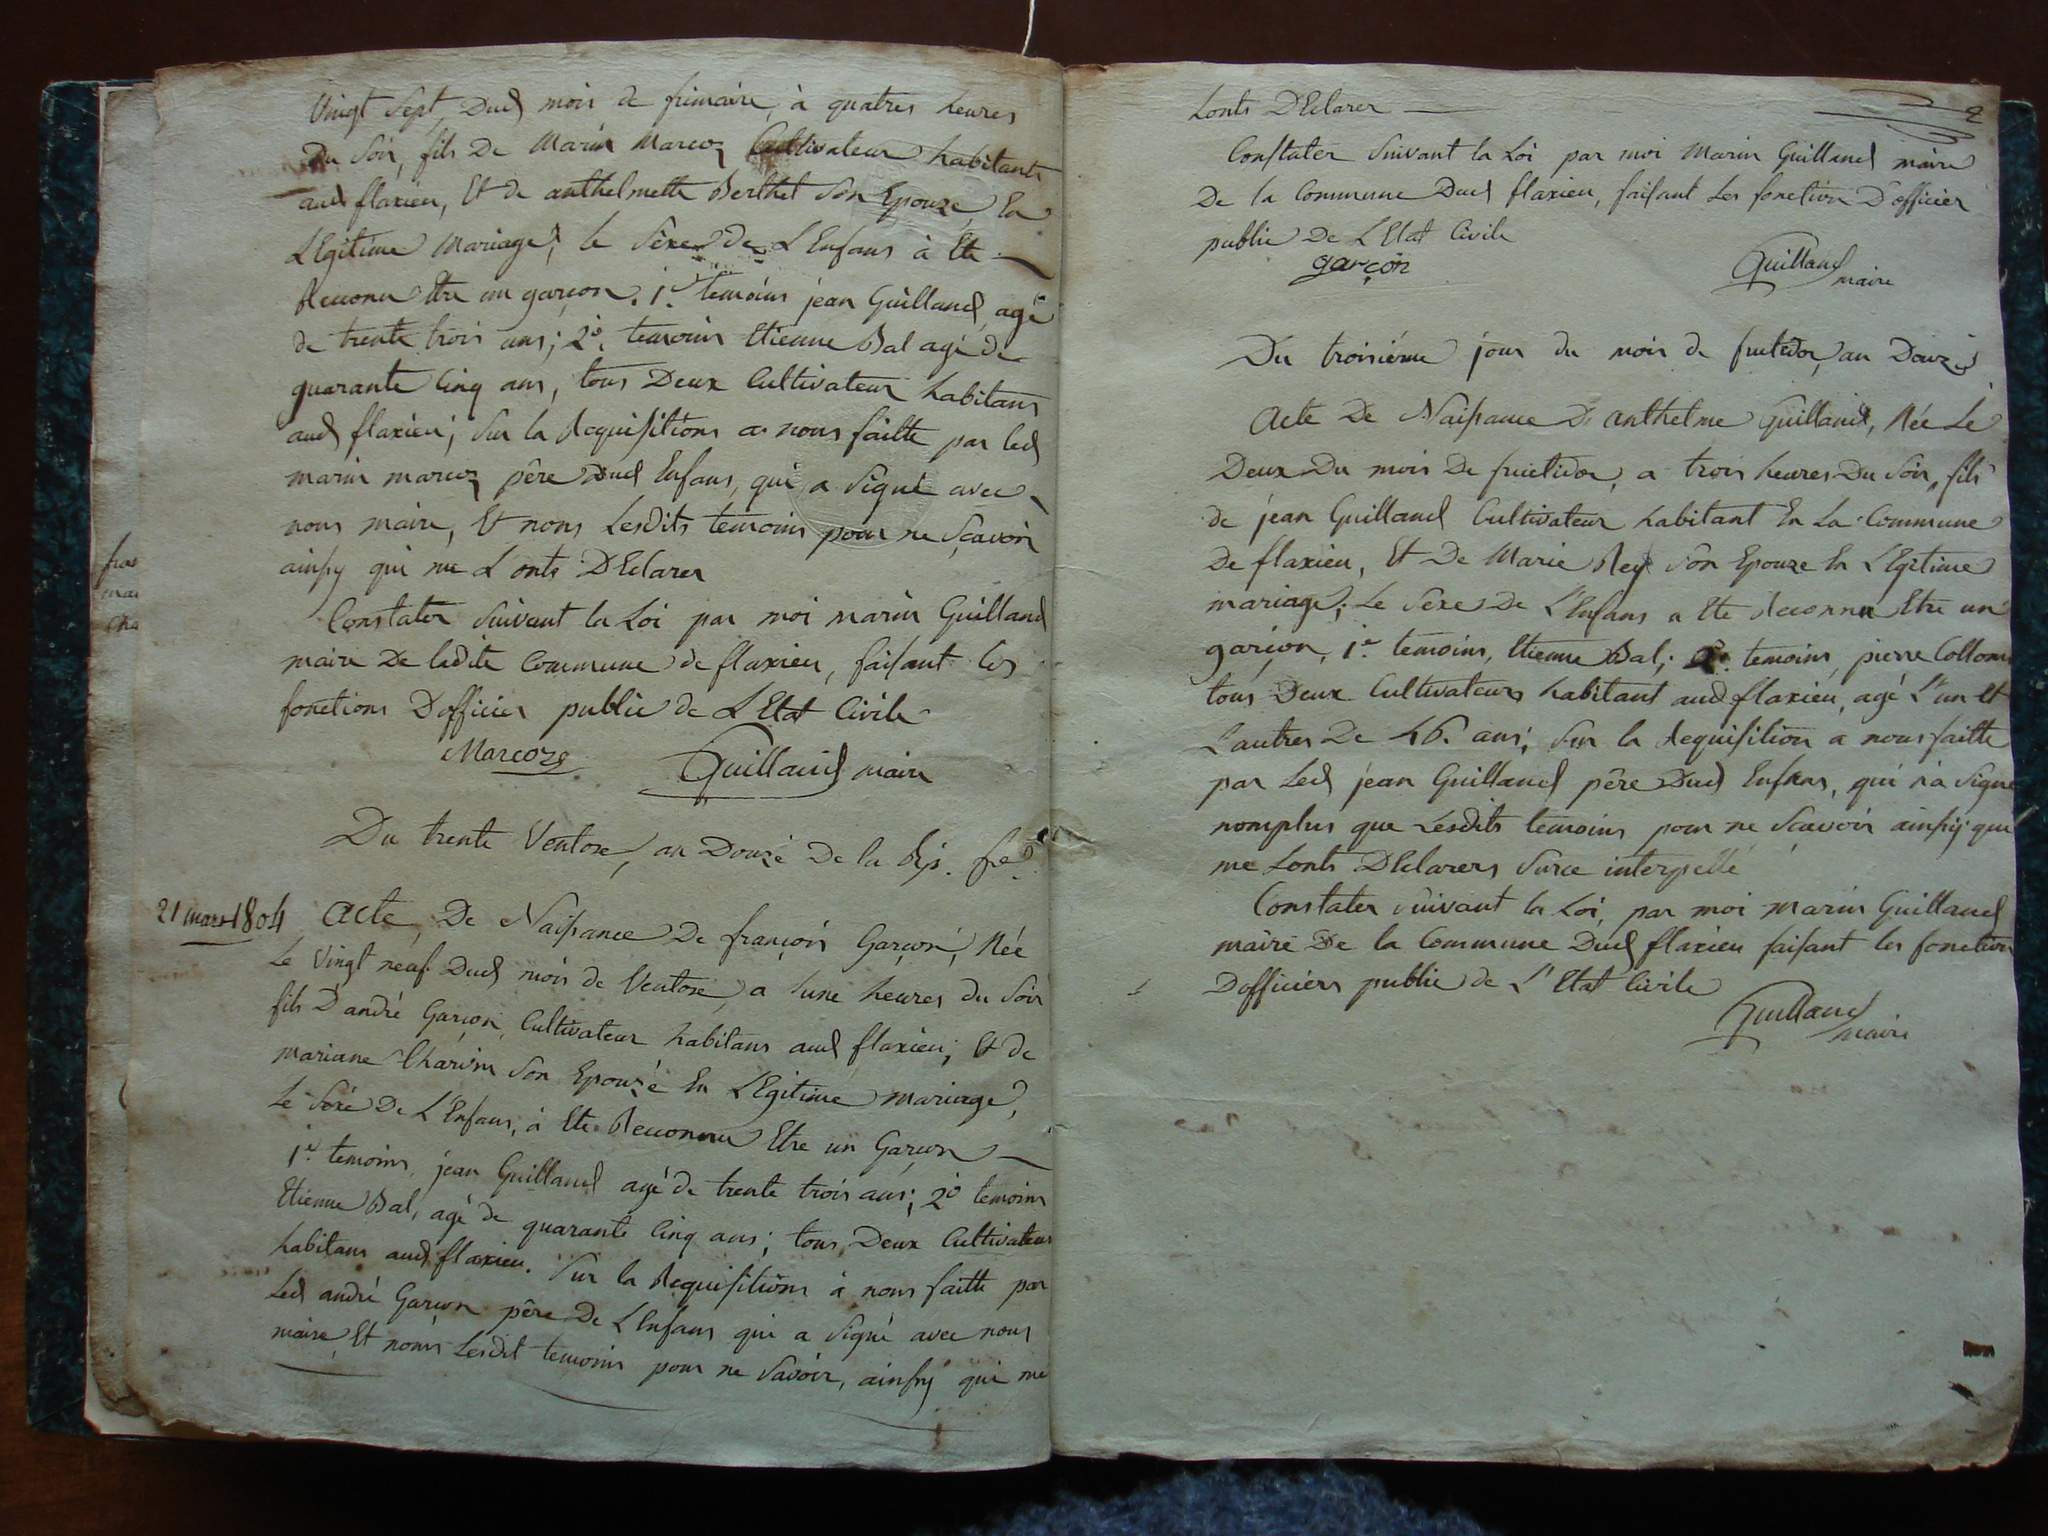 Vingt Sept Dud mois de frimaire, à quatres heures
Du Soir, fils De Marin Marcoz Cultivateur habitants
aud flaxieu, Et de anthelmette Berthet Son Epouze, En
LEgitime Mariage, le Séxe de LEnfans à Ete
Reconu Etre un garçon. 1.r temoins jean Guilland, agé
de trente trois ans; 2.e temoins Etienne Bal agé De
quarante Cinq ans, tous Deux Cultivateur habitans
aud flaxieu; Sur la Requisitions a nous faitte par led
marin marcoz père Dud Enfans, qui a Signé avec
nous maire, Et nons Lesdits temoins pour ne Sçavoir
ainsy qui me Lonts DEclarer
Constater Suivant la Loi par moi marin Guilland
maire De ladite Commune de flaxieu, faisant les
fonctions Dofficier public de LEtat Civile
Marcoze Guilland maire
Du trente Ventose, an Douze De la Rep. fre
21 mars 1804
Acte, De Naissance De françois Garçon, Née
Le Vingt neuf Dud mois de Ventose, a Lune heures du Soir
fils D'andré Garçon, Cultivateur habitans aud flaxieu; Et de
mariane Charvin Son Epouzé En LEgitime mariage,
Le Sexe De L'Enfans, à Ete Reconnu Etre un Garçon
1.r temoins, jean Guilland agé de trente trois ans; 2.e temoins
Etienne Bal, agé de quarante Cinq ans; tous Deux Cultivateurs
habitans aud flaxieu. Sur la Requisitions à nous faitte par
Led andré Garçon père De LEnfans qui a Signé avec nous
maire, Et nons Lesdit temoins pour ne Savoir, ainsy qui me
Lonts DEclarer
2
Constater Suivant la Loi par moi Marin Guilland maire
De la Commune Dud flaxieu, faisant Les fonction D'officier
public De LEtat Civile
garçon Guilland
maire
Du troisiéme jour du mois de fructidor, an Douze
Acte De Naissance D'anthelme Guilland, Née Le
Deux Du mois De fructidor, a trois heures Du Soir, fils
de jean Guilland Cultivateur habitant En La Commune
De flaxieu, Et De Marie Rey Son Epouze En LEgitime
mariage; Le Sexe De L'Enfans a Ete Reconnu Etre un
garçon, 1.r temoins, Etienne Bal; 2.e temoins, pierre Collom
tous Deux Cultivateurs habitant aud flaxieu, agé L'un Et
Lautres De 46. ans; Sur la Requisition a nous faitte
par Led jean Guilland père Dud Enfans, qui n'a Signé
nomplus que Lesdits temoins pour ne Scavoir ainsy que
me Lonts DEclarers Surce interpellé
Constater Suivant la Loi, par moi Marin Guilland
maire De la Commune Dud flaxieu faisant les fonction
Dofficiers public de L'Etat Civile
Guilland
maire